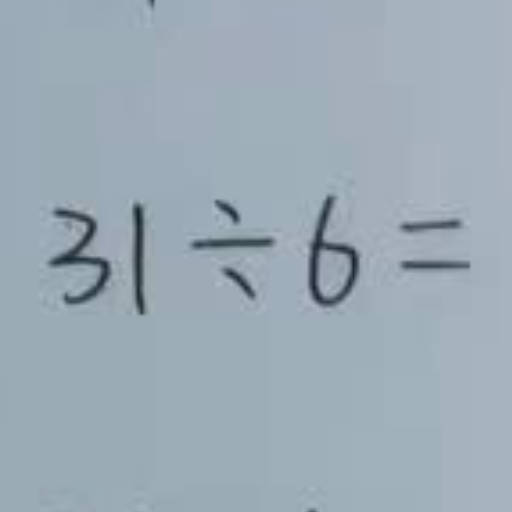 31÷6=